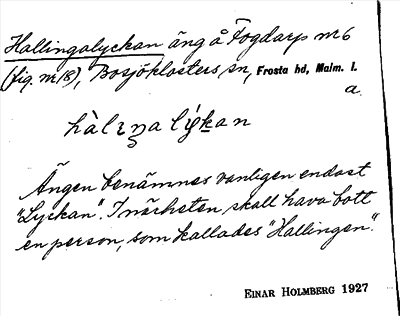 Hallingalyckan äng å Fogdarp nr 6
(fig. nr 13), Bosjöklosters sn, Frosta hd, Malm. l.
a.
Ängen benämnes vanligen endast
"Lyckan". I närheten skall hava bott
en person, som kallades "Hallingen".
EINAR HOLMBERG 1927